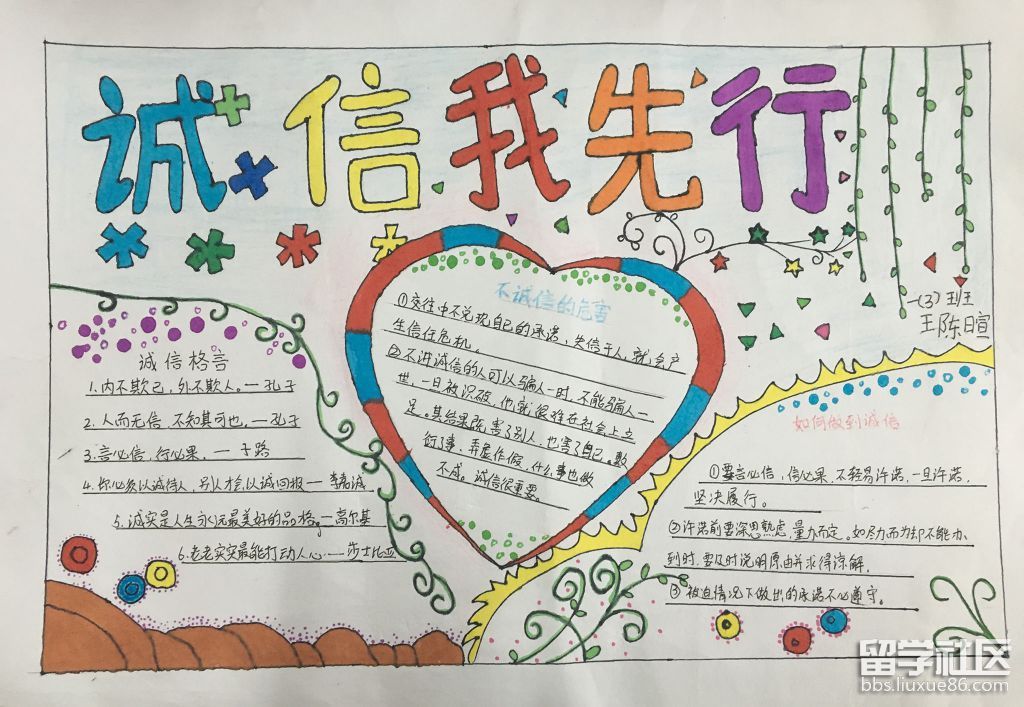 诚信我先行
一(3)班
王陈日宣
诚信格言
1.内不欺己,外不欺人。—孔子
2.人而无信,不知其可也,—孔子
3.言必信,行必果,—子路
4.你必须以诚待人,别人才会以诚回报—李嘉诚
5.诚实是人生永远最美好的品格。—高尔基
6.老老实实最能打动人心—莎士比亚
不诚信的危害
①交往中不兑现自己的承诺,失信于人,就会产
生信任危机,
②不讲诚信的人可以骗人一时,不能骗人一
世,一旦被识破,他就很难在社会上立
足。其结果既害了别人,也害了自己。敷
衍了事,弄虚作假,什么事也做
不成。诚信很重要。
如何做到诚信
①要言必信,信必果,不轻易许诺,一旦许诺,
坚决履行。
②许诺前要深思熟虑,量力而定。如尽力而为却不能办
到时,要及时说明原由并求得谅解,
③被迫情况下做出的承诺不必遵守。
留学社区
bbs.liuxue86.com